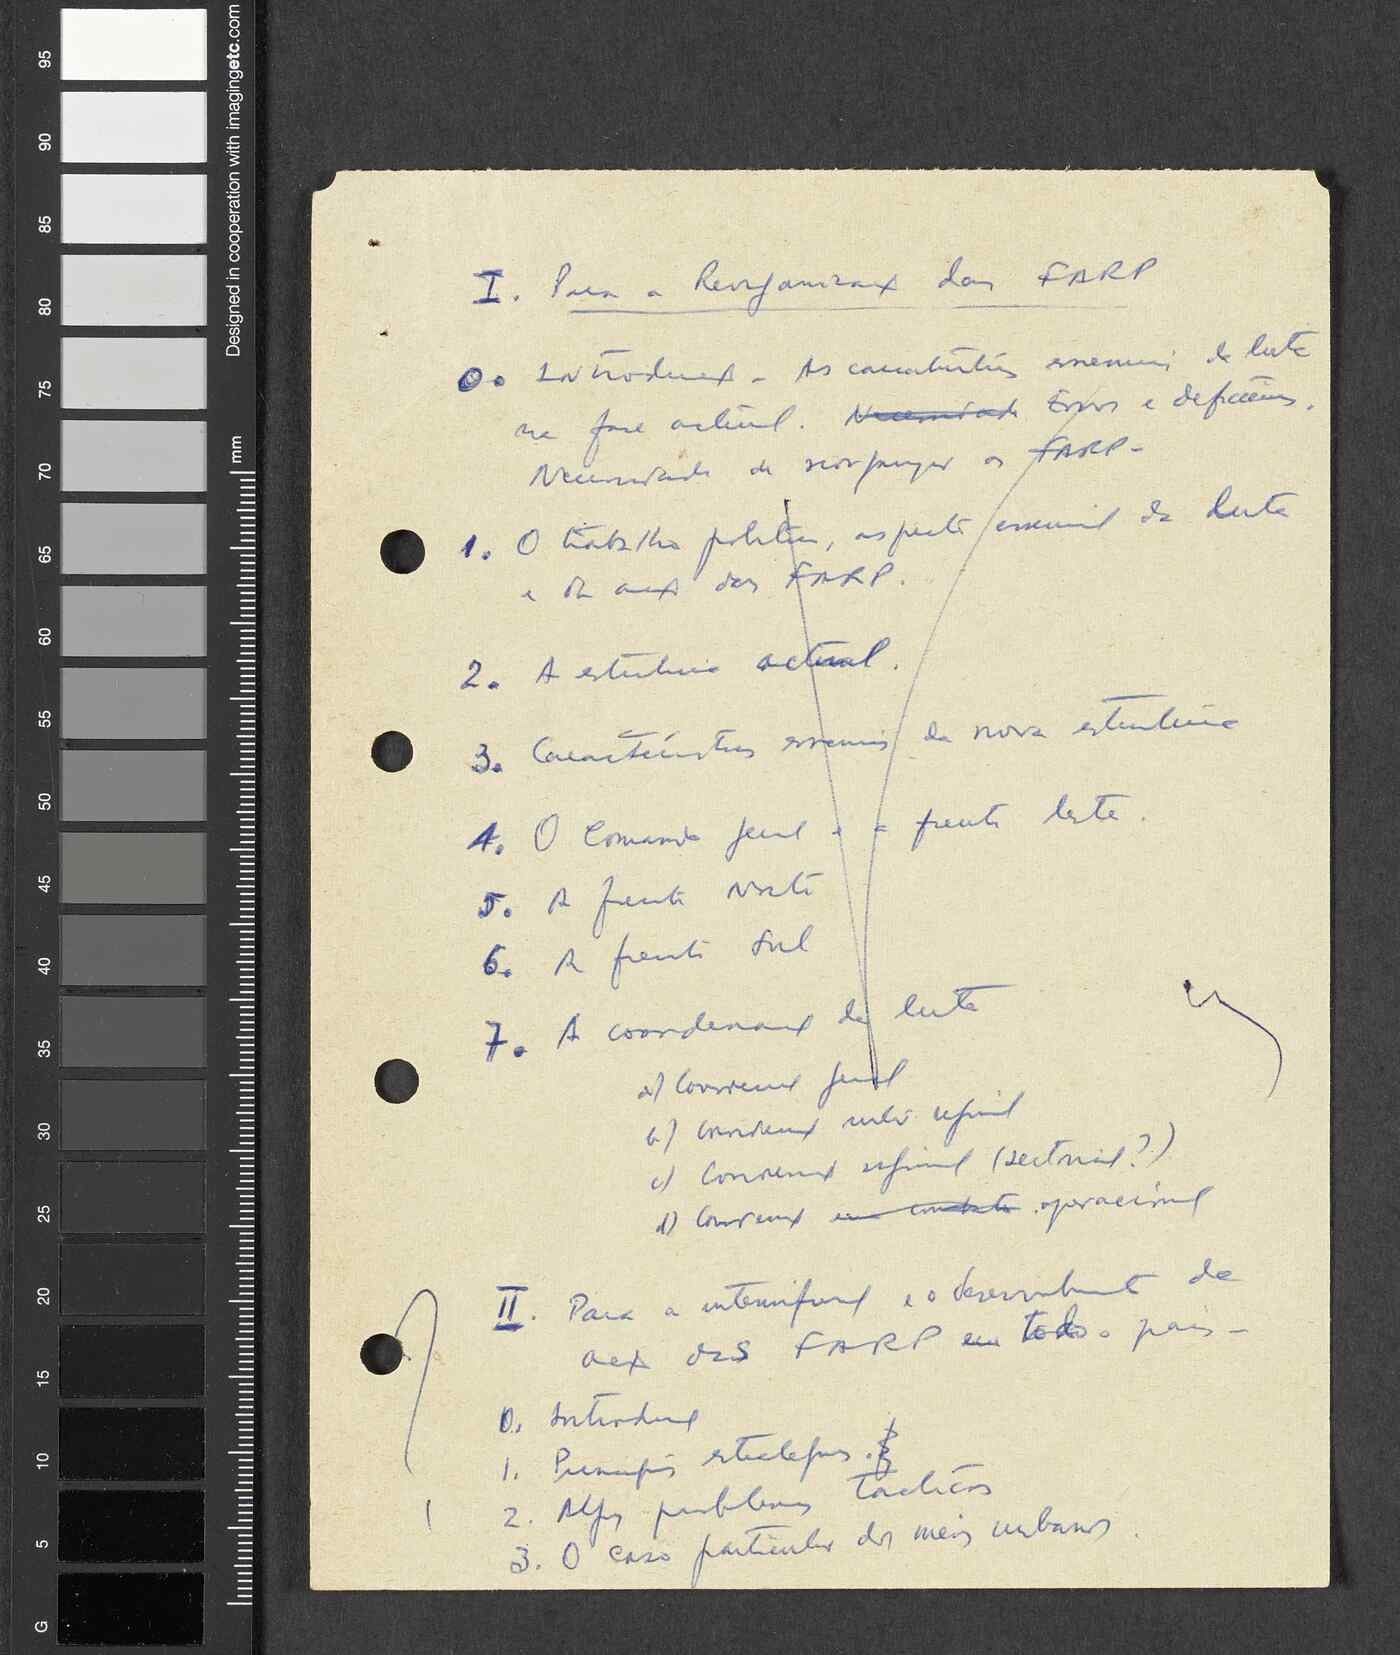 Designed in cooperation with imagingetc.com
mm
95
90
85
80
75
70
65
60
55
50
45
40
35
30
25
20
15
10
5
G
I. Para a Reorganizax das FARP
0. Introdux - As características essenciais da luta
na fase actual. Necessidade Erros e deficiências.
Necessidade de reorganizar as FARP -
1. O trabalho político, aspecto essencial da luta
e da acx das FARP.
2. A estrutura actual.
3. Características essenciais da nova estrutura
4. O Comando geral e a frente leste.
5. A frente Norte
6. A frente Sul
7. A coordenax da luta
a) Coordenax geral
b) Coordenax inter-regional
c) Coordenax regional (sectorial?)
d) Coordenax em combate operacional
II. Para a intensificax e o desenvolvimento da
acx das FARP em todo o país -
0. Introdux
1. Princípios estratégicos.
2. Alguns problemas tácticos
3. O caso particular dos meios urbanos.